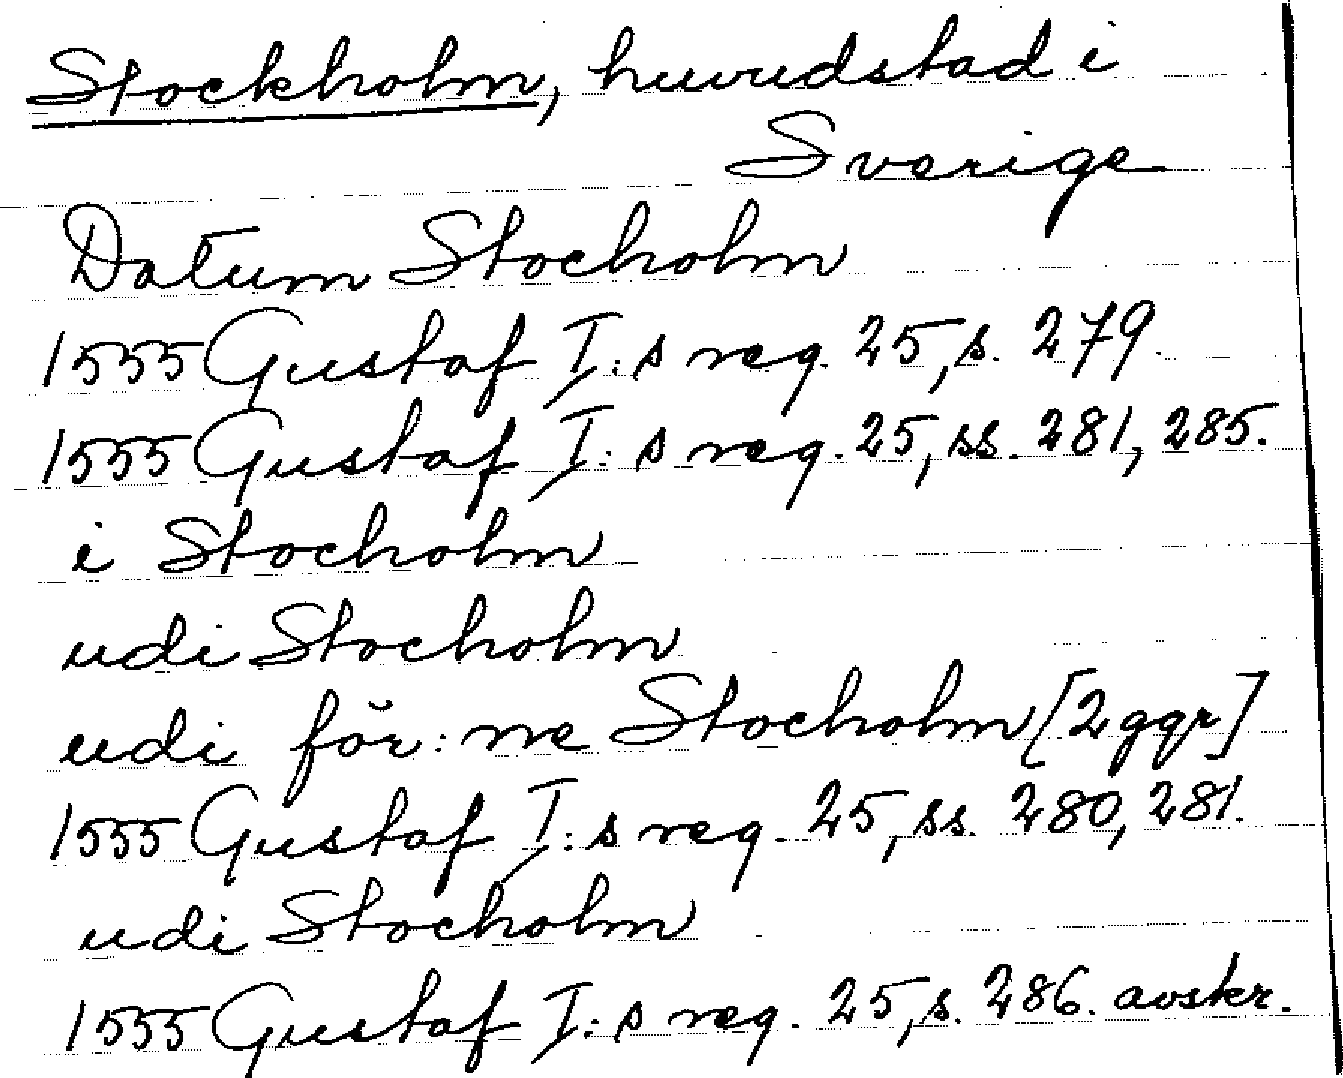 Stockholm, huvudstad i
Sverige
Datum Stocholm
1555 Gustaf I:s reg. 25, s. 279.
1555 Gustaf I:s reg. 25, ss. 281, 285.
i Stocholm
udi Stocholm
udi för:ne Stocholm [2 ggr]
1555 Gustaf I:s reg. 25, ss. 280, 281.
udi Stocholm
1555 Gustaf I:s reg. 25, s. 286. avskr.